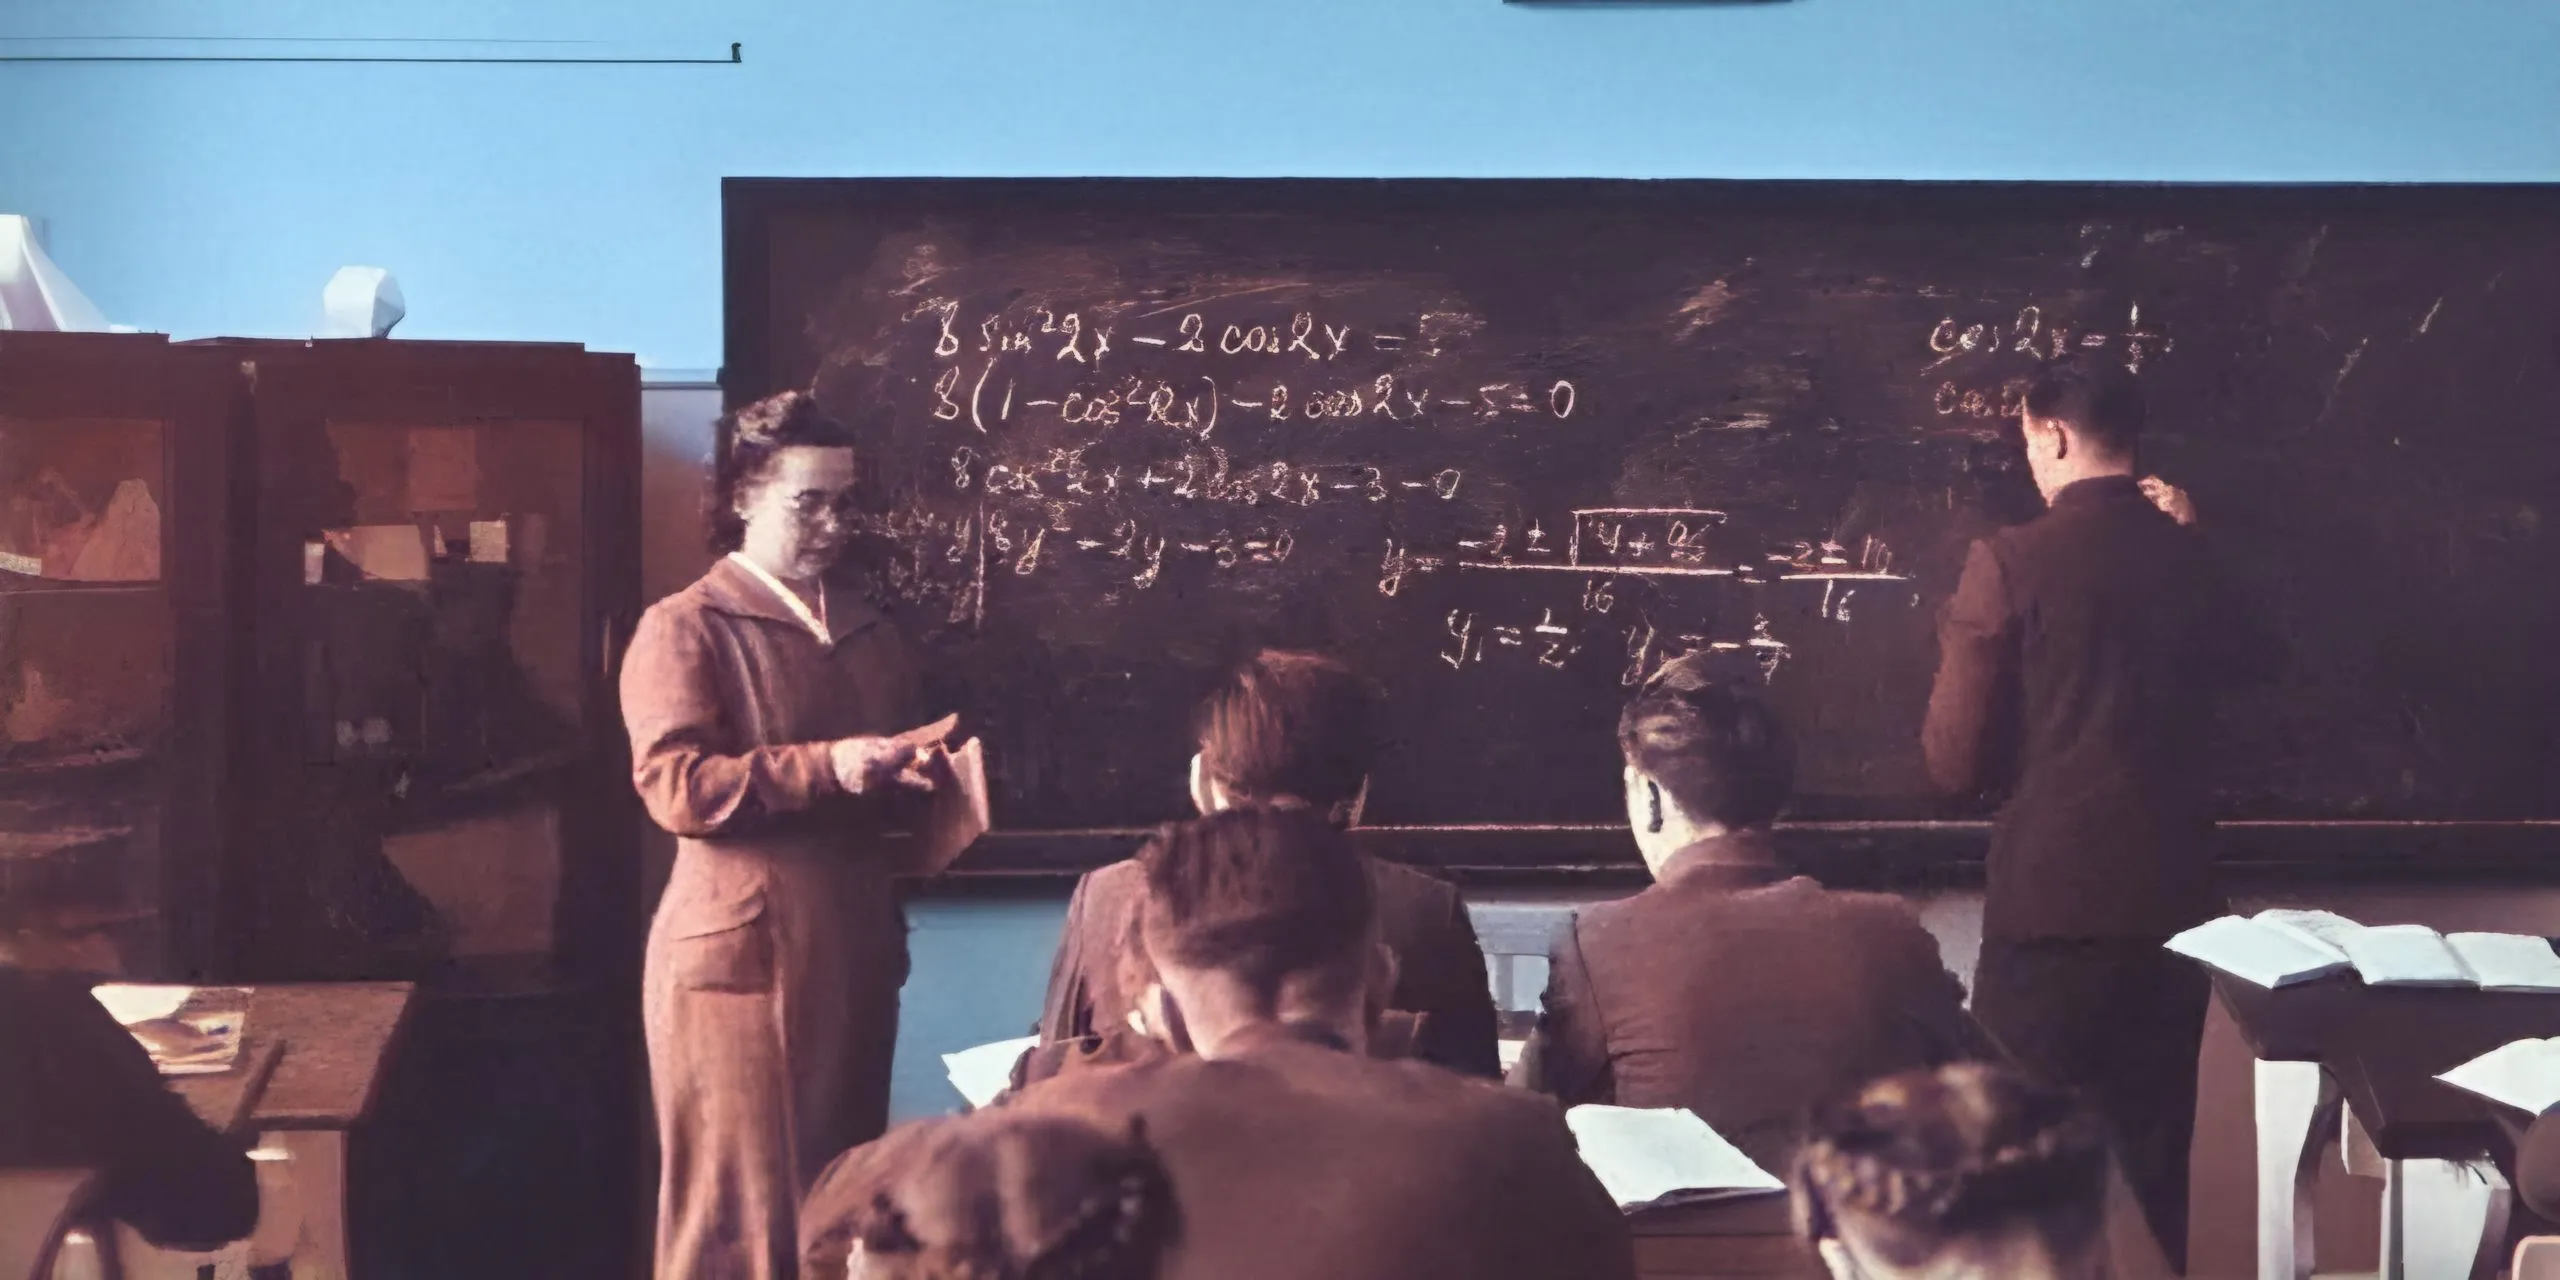 8 sin²2x − 2 cos2x = 5
8(1 − cos²2x) − 2 cos2x − 5 = 0
8 cos²2x + 2 cos2x − 3 = 0
8y² − 2y − 3 = 0
y = (−2 ± √(4 + 96))/16 = (−2 ± 10)/16
y₁ = 1/2 y₂ = −3/4
cos2x = 1/2
cos2